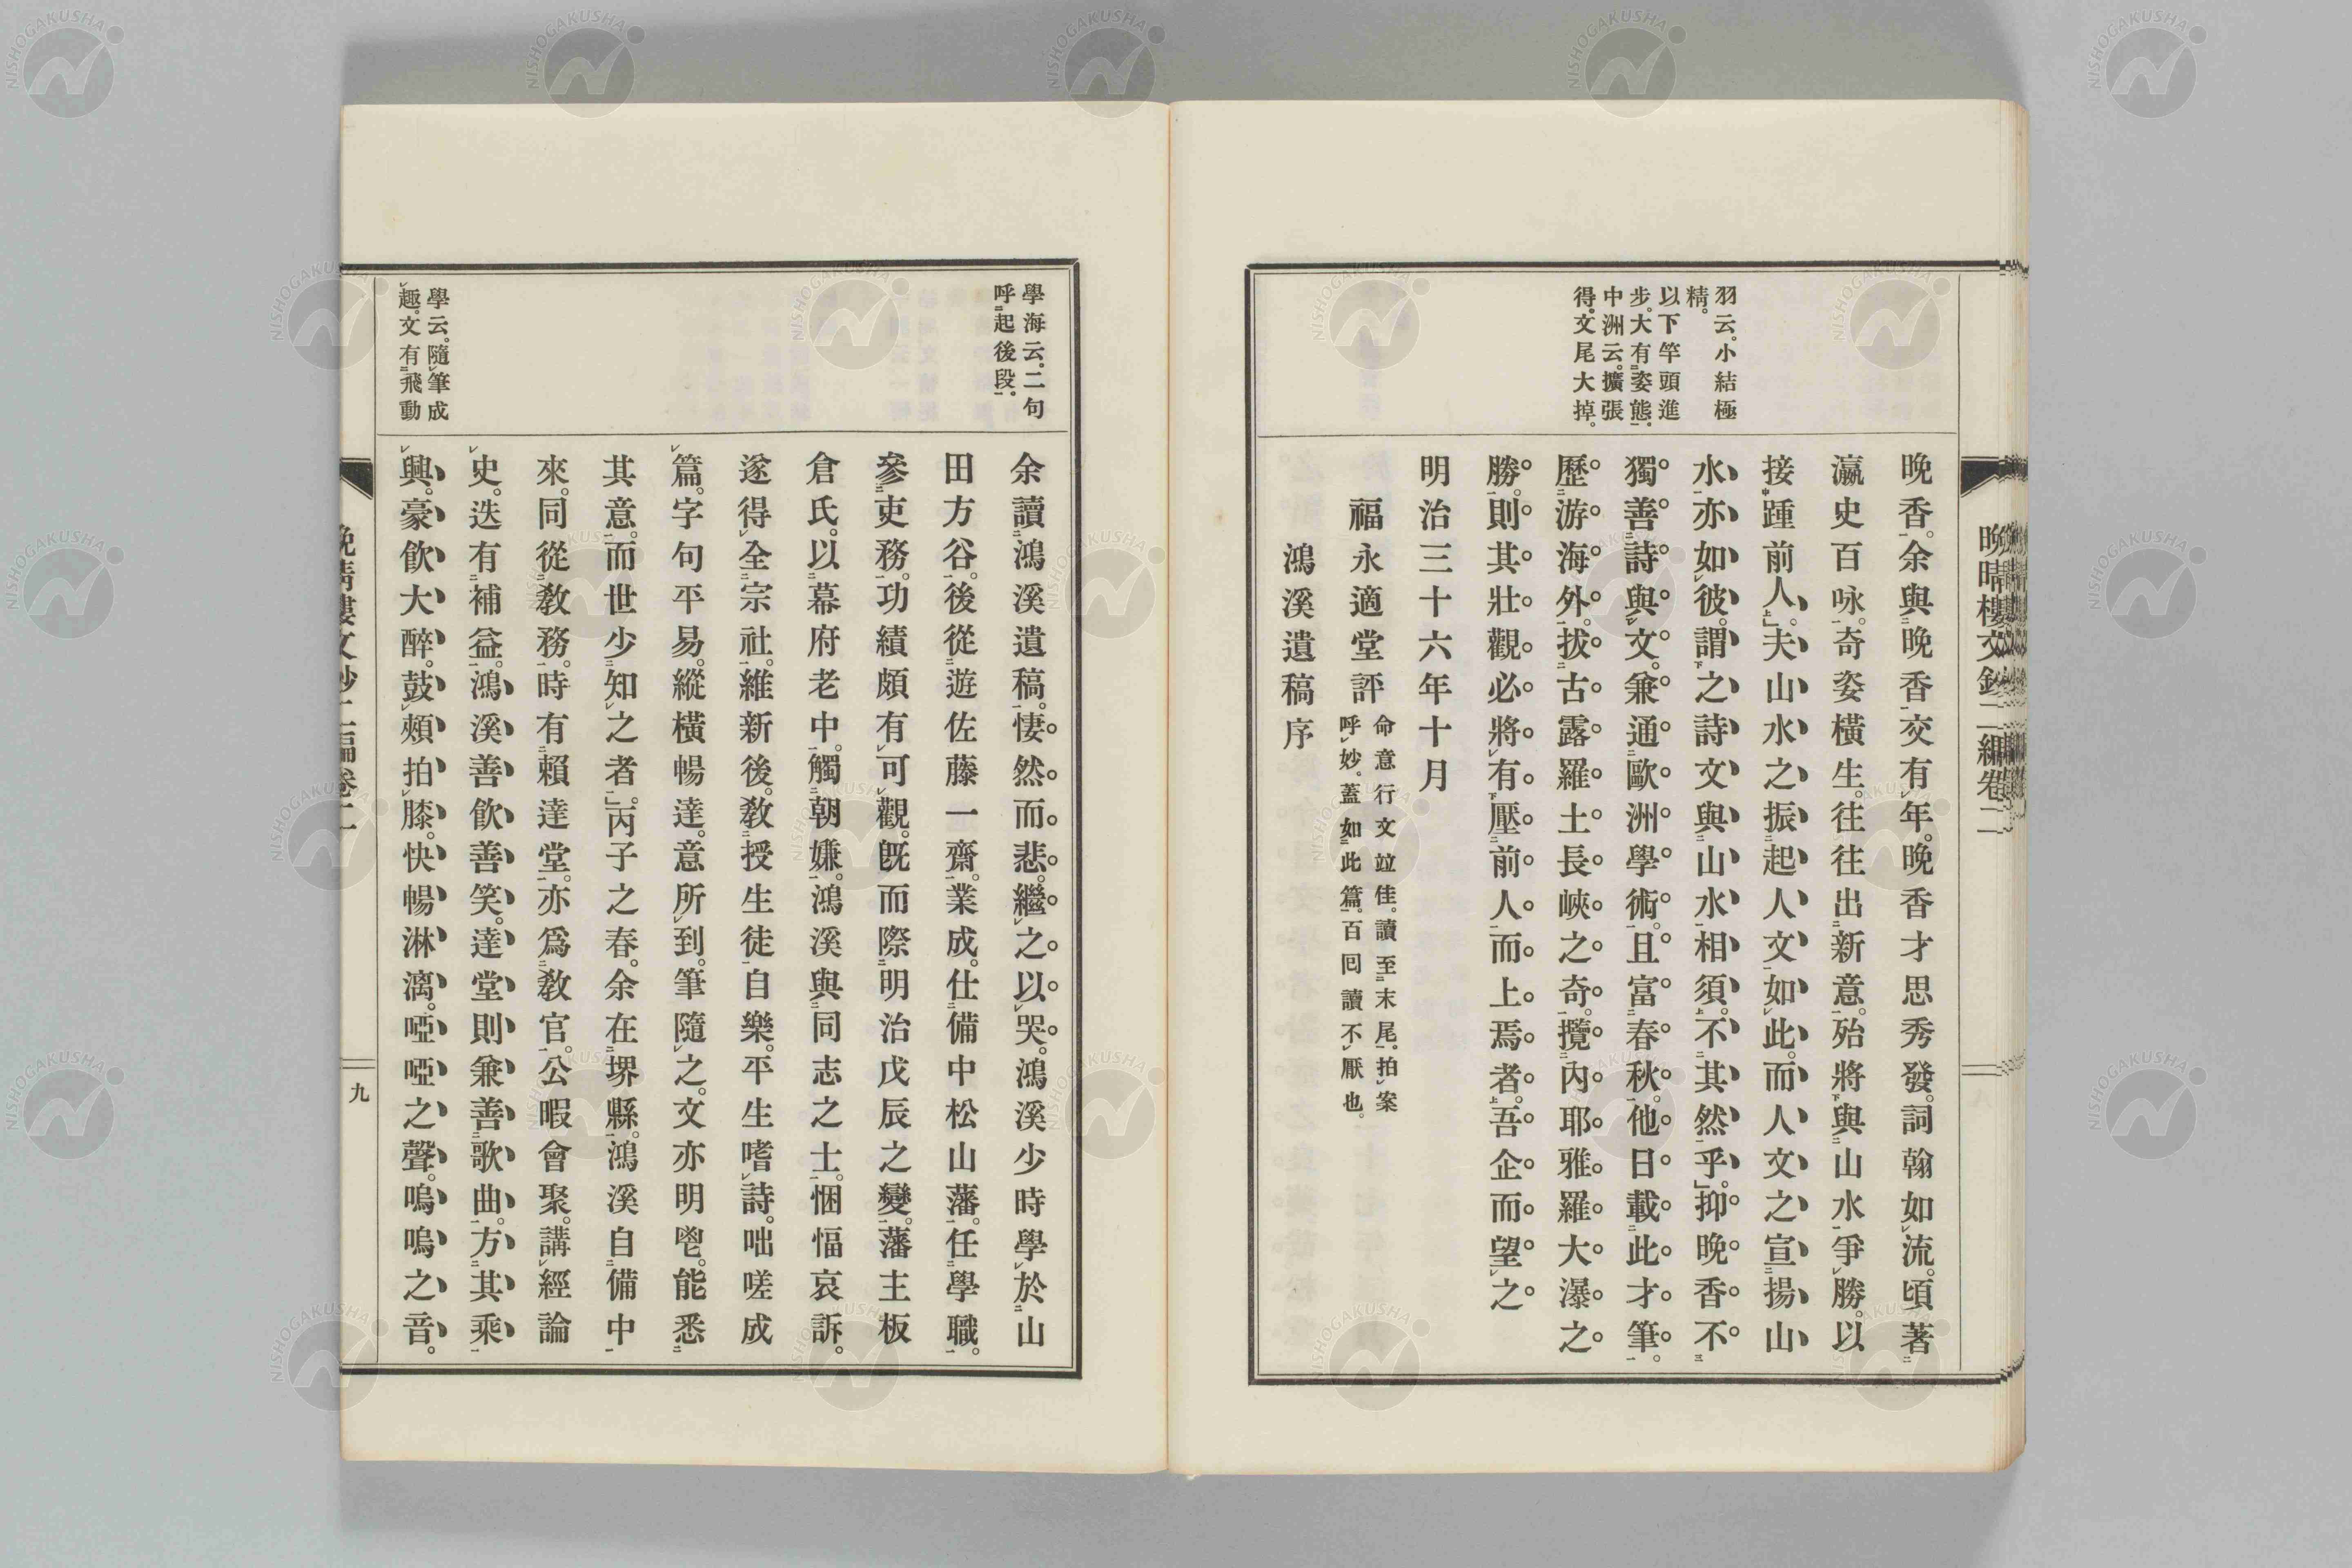 晩晴樓文鈔二編卷二
羽云。小結極
精。
以下竿頭進
步。大有姿態。
中洲云。擴張
得。文尾大掉。
晩香。余與晩香交有年。晩香才思秀發。詞翰如流。頃著
瀛史百咏。奇姿橫生。往往出新意。殆將與山水爭勝。以
接踵前人。夫山水之振起人文如此。而人文之宣揚山
水亦如彼。謂之詩文與山水相須。不其然乎。抑晩香不
獨善詩與文。兼通歐洲學術。且富春秋。他日載此才筆。
歷游海外。拔古露羅土長峽之奇。攬內耶雅羅大瀑之
勝。則其壯觀必將有壓前人而上焉者。吾企而望之
明治三十六年十月
福永適堂評
命意行文竝佳。讀至末尾。拍案
呼妙。蓋如此篇。百回讀不厭也。
鴻溪遺稿序
學海云。二句
呼起後段。
學云。隨筆成
趣。文有飛動
余讀鴻溪遺稿。悽然而悲。繼之以哭。鴻溪少時學於山
田方谷。後從遊佐藤一齋。業成。仕備中松山藩。任學職。
參吏務。功績頗有可觀。旣而際明治戊辰之變。藩主板
倉氏。以幕府老中。觸朝嫌。鴻溪與同志之士。悃愊哀訴。
遂得全宗社。維新後。敎授生徒自樂。平生嗜詩。咄嗟成
篇。字句平易。縱橫暢達。意所到。筆隨之。文亦明鬯。能悉
其意。而世少知之者。丙子之春。余在堺縣。鴻溪自備中
來。同從敎務。時有賴達堂。亦爲敎官。公暇會聚。講經論
史。迭有補益。鴻溪善飮善笑。達堂則兼善歌曲。方其乘
興。豪飮大醉。鼓頰拍膝。快暢淋漓。啞啞之聲。嗚嗚之音。
晩晴樓文鈔二編卷二
九